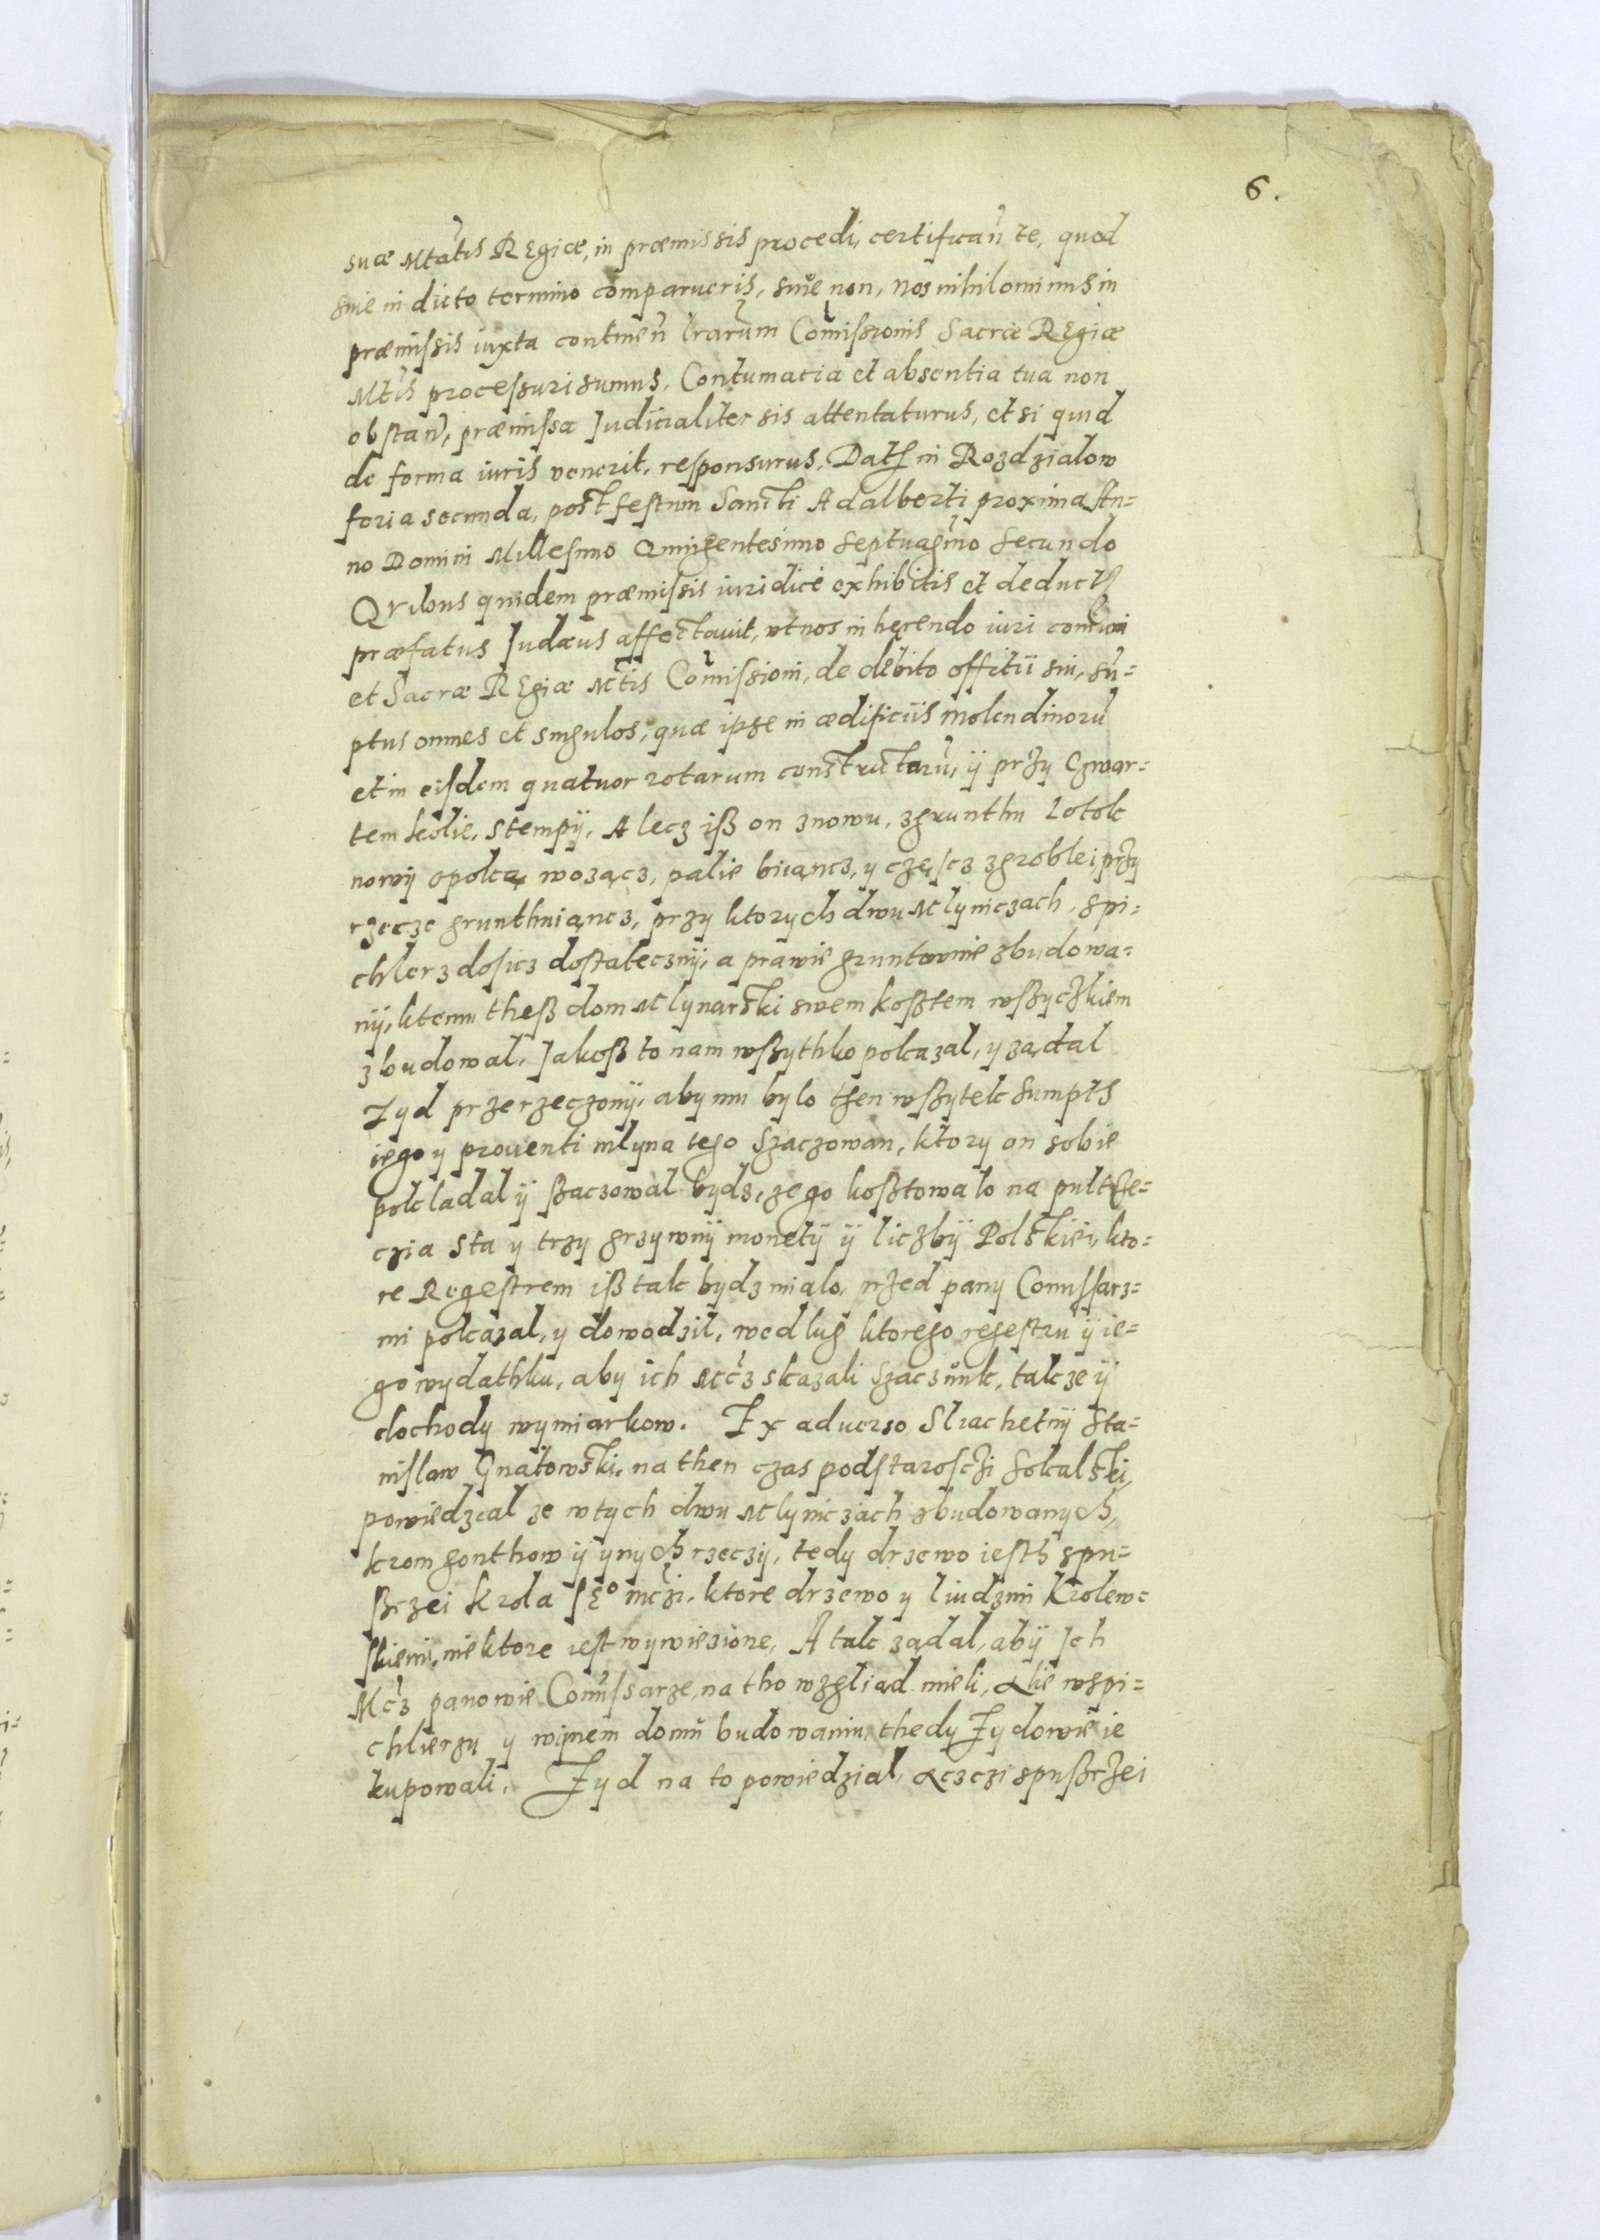 6.
suæ Mtatis Regiæ, in præmissis procedi, certifican̄ te, quod
siue in dicto termino comparueris, siue non, nos nihilominus in
præmissis iuxta continen̄ l̄rarum Com̄issionis Sacræ Regiæ
Mtis processuri sumus, Contumacia et absentia tua non
obstan̄, præmissa Judicialiter sis attentaturus, et si quid
de forma iuris venerit, responsurus, Dat̄ in Rozdzialow
feria secunda, post festum Sancti Adalberti proxima An=
no Domini Millesimo Quingentesimo Septuagmo Secundo
Quibus quidem præmissis iuridicè exhibitis et deduct
præfatus Judæus affectauit, vt nos in herendo iuri com̄uni
et Sacræ Regiæ Mtis Com̄issioni, de debito offitii sui, sū=
ptus omnes et singulos, quæ ipse in ædificiis molendinorū
et in eisdem quatuor rotarum constructarū, ÿ przy Czwar=
tem kolie, stempÿ, A lecz iß on znowu, zgrunthu Lotok
nowÿ opoką wożącz, palie biiąncz, y częscz zgroblei przy
rzecze grunthuiąncz, przy ktorych dwu Mlyniczach, spi=
chlerz dosicz dostatecznÿ, a prawie gruntownie zbudowa=
nÿ, ktemu theß dom Mlynarski swem kosztem wßyczkiem
zbudowal, Jakoß to nam wßythko pokazal, y ządal
Zyd przerzeczonÿ, aby mu bylo then wßytek sumpts
iego y prouenti mlyna tego Szaczowan, ktory on sobie
pokladal ÿ ßaczowal bydz, ze go koßtowalo na pultrze=
czia sta y trzy grzywnÿ monetÿ ÿ liczbÿ Polskiei, kto=
re Regestrem iß tak bydz mialo, przed pany Comissarz=
mi pokazal, y dowodzil, wedlug ktorego regestru ÿ ie=
go wydathku, aby ich Mcz skazali szaczunk, takze ÿ
dochody wymiarkow. Ex aduerso Slachetnÿ Sta=
nislaw Gnatowski, na then czas podstarosczi Sokalski,
powiedzial ze w tych dwu Mlyniczach zbudowanych,
krom gonthow ÿ ynych rzeczÿ, tedy drzewo iesth spu=
ßczei krola Je° mczi, ktore drzewo y liudzmi Krolew=
skiemi, niektore iest wywiezione, A tak ządal, abÿ Ich
Mcz panowie Com̄issarze, na tho wzgliąd mieli, Ale wspi=
chlierzu y wÿnem domu budowaniu, thedy Zydowie ie
kupowali. Zyd na to powiedzial, Aczczi spußczei